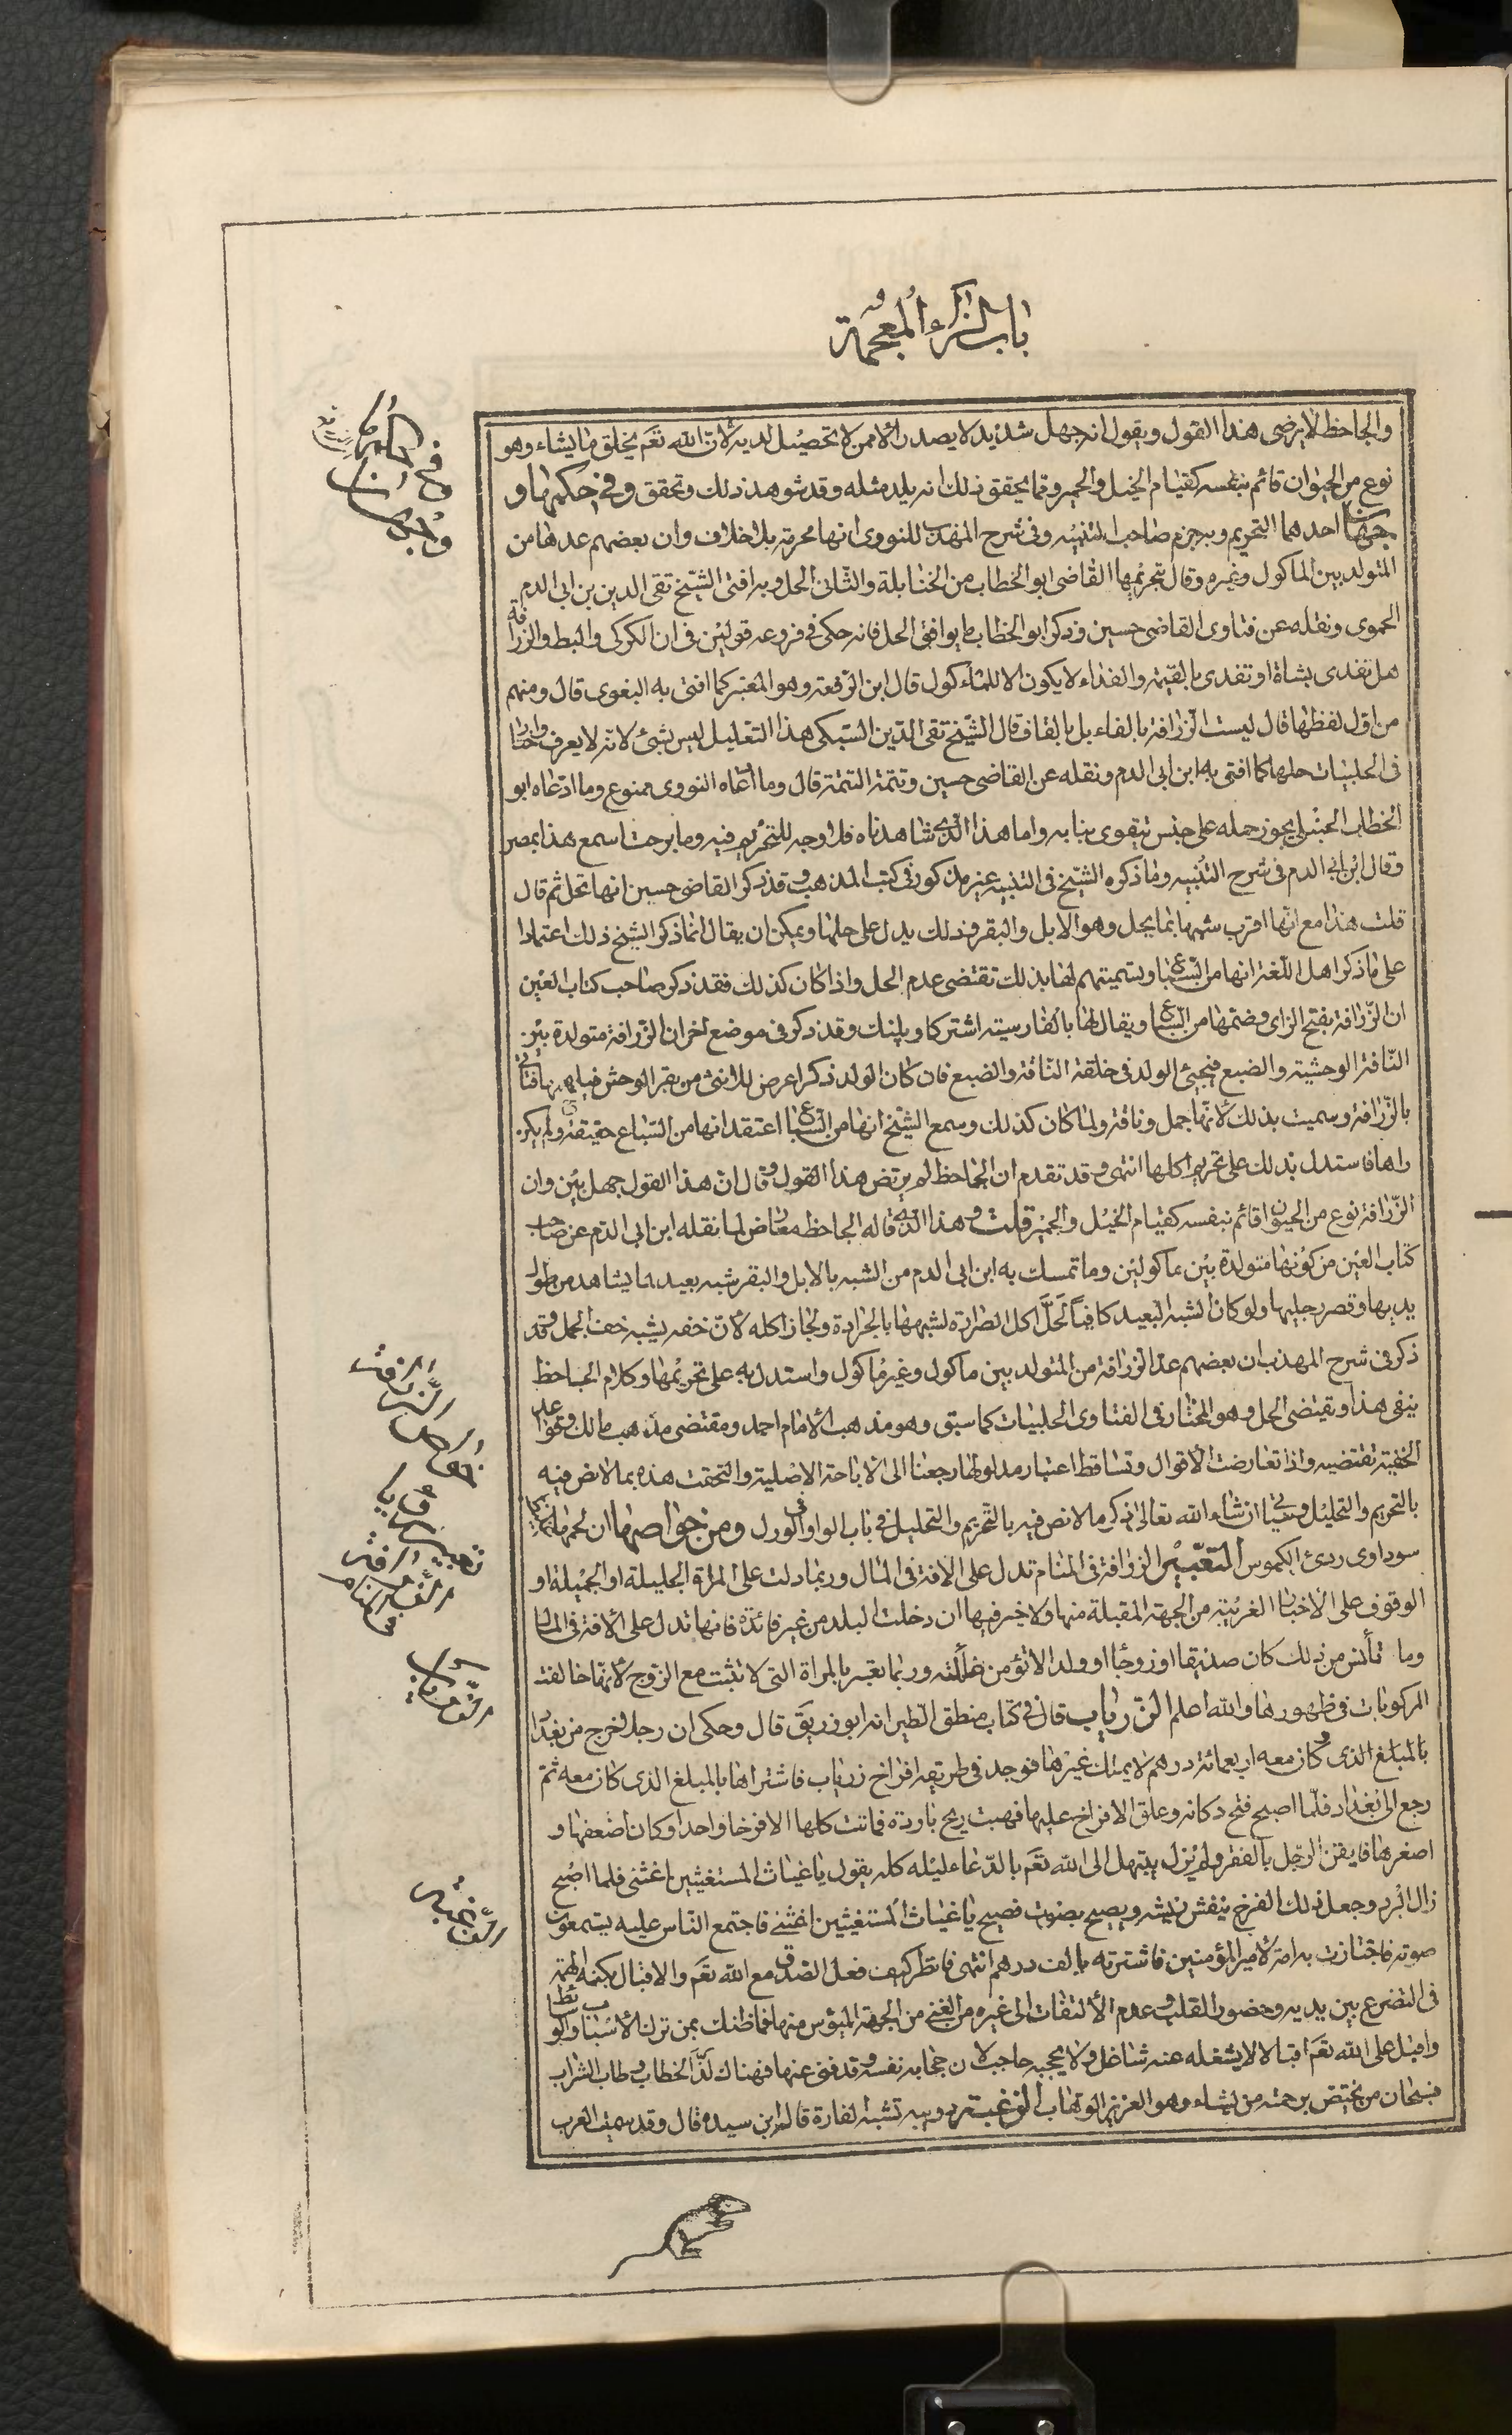 باب الزاء المعجمة
والجاحظ لا يرضى هذا القول ويقول انه جهل شديد لا يصدر الا ممن لا تحصيل لديه لان الله تعم يخلق ما يشاء وهو
نوع من الحيوان قائم بنفسه كقيام الخيل والحمير ومما يحقق ذلك انه يلد مثله وقد شوهد ذلك وتحقق وفي حكمها و
جهان احدهما التحريم وبه جزم صاحب التنبيه وفى شرح المهذب للنووى انها محرمة بلا خلاف وان بعضهم عدها من
المتولد بين الماكول وغيره وقال بتحريمها القاضى ابو الخطاب من الحنابلة والثانى الحل وبه افتى الشيخ تقى الدين بن ابى الدم
الحموى ونقله عن فتاوى القاضى حسين وذكر ابو الخطاب ما يوافق الحل فانه حكى فى فروعه قولين فى ان الكركى والبط والزرافة
هل تفدى بشاة او تفدى بالقيمة والفداء لا يكون الا للماكول قال ابن الرفعة وهو المعتبر كما افتى به البغوى قال ومنهم
من اول لفظها قال ليست الزرافة بالفاء بل بالقاف قال الشيخ تقى الدين السبكى هذا التعليل ليس بشئ لانه لا يعرف واختار
فى الحلبيات حلها كما افتى به ابن ابى الدم ونقله عن القاضى حسين وتتمة التتمة قال وما ادعاه النووى ممنوع وما ادعاه ابو
الخطاب الحنبلى يجوز حمله على جنس يتقوى بنابه واما هذا الذى شاهدناه فلا وجه للتحريم فيه وما برحت اسمع هذا بمصر
وقال ابن ابى الدم فى شرح التنبيه وما ذكره الشيخ فى التنبيه غير مذكور فى كتب المذهب وقد ذكر القاضى حسين انها تحل ثم قال
قلت هذا مع انها اقرب شبها بما يحل وهو الابل والبقر وذلك يدل على حلها ويمكن ان يقال انما ذكر الشيخ ذلك اعتمادا
على ما ذكر اهل اللغة انها من السباع وتسميتهم لها بذلك تقتضى عدم الحل واذا كان كذلك فقد ذكر صاحب كتاب العين
ان الزرافة بفتح الزاى وضمها من السباع ويقال لها بالفارسية اشتركا وپلنك وقد ذكر فى موضع اخر ان الزرافة متولدة بين
الناقة الوحشية والضبع فيجيئ الولد فى خلقة الناقة والضبع فان كان الولد ذكرا عرض للانثى من بقر الوحش فياتيها فتاتى
بالزرافة وسميت بذلك لانها جمل وناقة ولما كان كذلك وسمع الشيخ انها من السباع اعتقد انها من السباع حقيقة ولم يكن
راها فاستدل بذلك على تحريم اكلها انتهى وقد تقدم ان الجاحظ لم يرتض هذا القول وقال ان هذا القول جهل بين وان
الزرافة نوع من الحيوان قائم بنفسه كقيام الخيل والحمير قلت وهذا الذى قاله الجاحظ معارض لما نقله ابن ابى الدم عن صاحب
كتاب العين من كونها متولدة بين ماكولين وما تمسك به ابن ابى الدم من الشبه بالابل والبقر شبه بعيد لما يشاهد من طول
يديها وقصر رجليها ولو كان الشبه البعيد كافيا لحل اكل الطرارة لشبهها بالجرادة ولجاز اكله لان خفه يشبه خف الجمل وقد
ذكر فى شرح المهذب ان بعضهم عد الزرافة من المتولد بين ماكول وغير ماكول واستدل به على تحريمها وكلام الجاحظ
ينفى هذا ويقتضى الحل وهو المختار فى الفتاوى الحلبيات كما سبق وهو مذهب الامام احمد ومقتضى مذهب مالك وقواعد
الحنفية تقتضيه واذا تعارضت الاقوال وتساقط اعتبار مدلولها رجعنا الى الاباحة الاصلية والتحقت هذه بما لا نص فيه
بالتحريم والتحليل وسيأتى ان شاء الله تعالى ذكر ما لا نص فيه بالتحريم والتحليل فى باب الواو فى الورل ومن خواصها ان لحمها
سوداوى ردئ الكموس التعبير الزرافة فى المنام تدل على الافة فى المال وربما دلت على المراة الجليلة او الجميلة او
الوقوف على الاخبار الغريبة من الجهة المقبلة منها ولا خير فيها ان دخلت البلد من غير فائدة فانها تدل على الافة فى المال
وما تأنس من ذلك كان صديقا او زوجا او ولدا لا تؤمن غائلته وربما تعبر بالمراة التى لا تثبت مع الزوج لانها خالفت
المركوبات فى ظهورها والله اعلم الزرياب قال فى كتاب منطق الطير انه ابو زريق قال وحكى ان رجلا خرج من بغداد
بالمبلغ الذى وكان معه اربعمائة درهم لا يملك غيرها فوجد فى طريقه افراخ زرياب فاشتراها بالمبلغ الذى كان معه ثم
رجع الى بغداد فلما اصبح فتح دكانه وعلق الافراخ عليها فهبت ريح باردة فماتت كلها الا فرخا واحدا وكان اضعفها و
اصغرها فايقن الرجل بالفقر ولم يزل يبتهل الى الله تعم بالدعاء ليله كله يقول يا غياث المستغيثين اغثنى فلما اصبح
زال البرد وجعل ذلك الفرخ ينفش ريشه ويصيح بصوت فصيح يا غياث المستغيثين اغثنى فاجتمع الناس عليه يستمعون
صوته فاجتازت به امة لامير المؤمنين فاشترته بالف درهم انتهى فانظر كيف فعل الصدق مع الله تعم والاقبال بكنه الهمة
فى التضرع بين يديه وحضور القلب وعدم الالتفات الى غيره من الغنى من الجهة الميؤس منها فما ظنك بمن ترك الاسباب والوسائط
واقبل على الله تعم اقبالا لا يشغله عنه شاغل ولا يحجبه حاجب لان حجابه نفسه وقد فنى عنها فهناك لذ الخطاب وطاب الشراب
فسبحان من يختص برحمته من يشاء وهو العزيز الوهاب الزغبة دويبة تشبه الفارة قاله ابن سيده قال وقد سمت العرب
خواص الزرافة
تعبير رؤيا الزرافة فى المنام
الزرياب
الزغبة